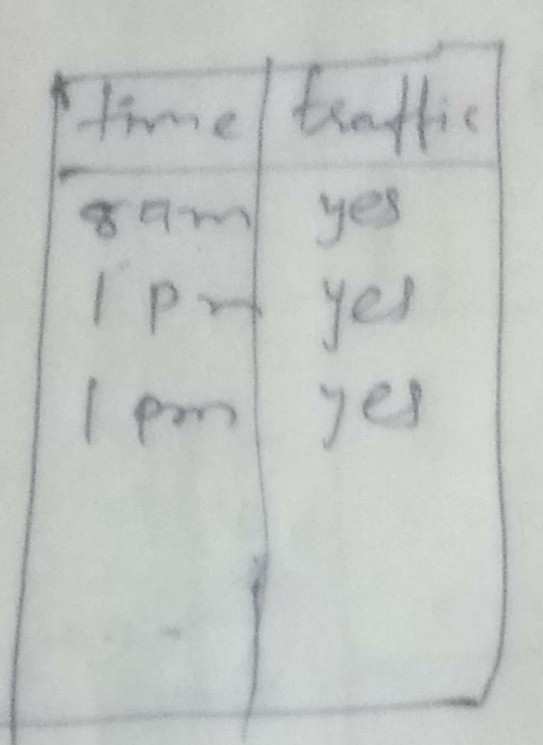 time traffic
8 am yes
1 pm yes
1 pm yes